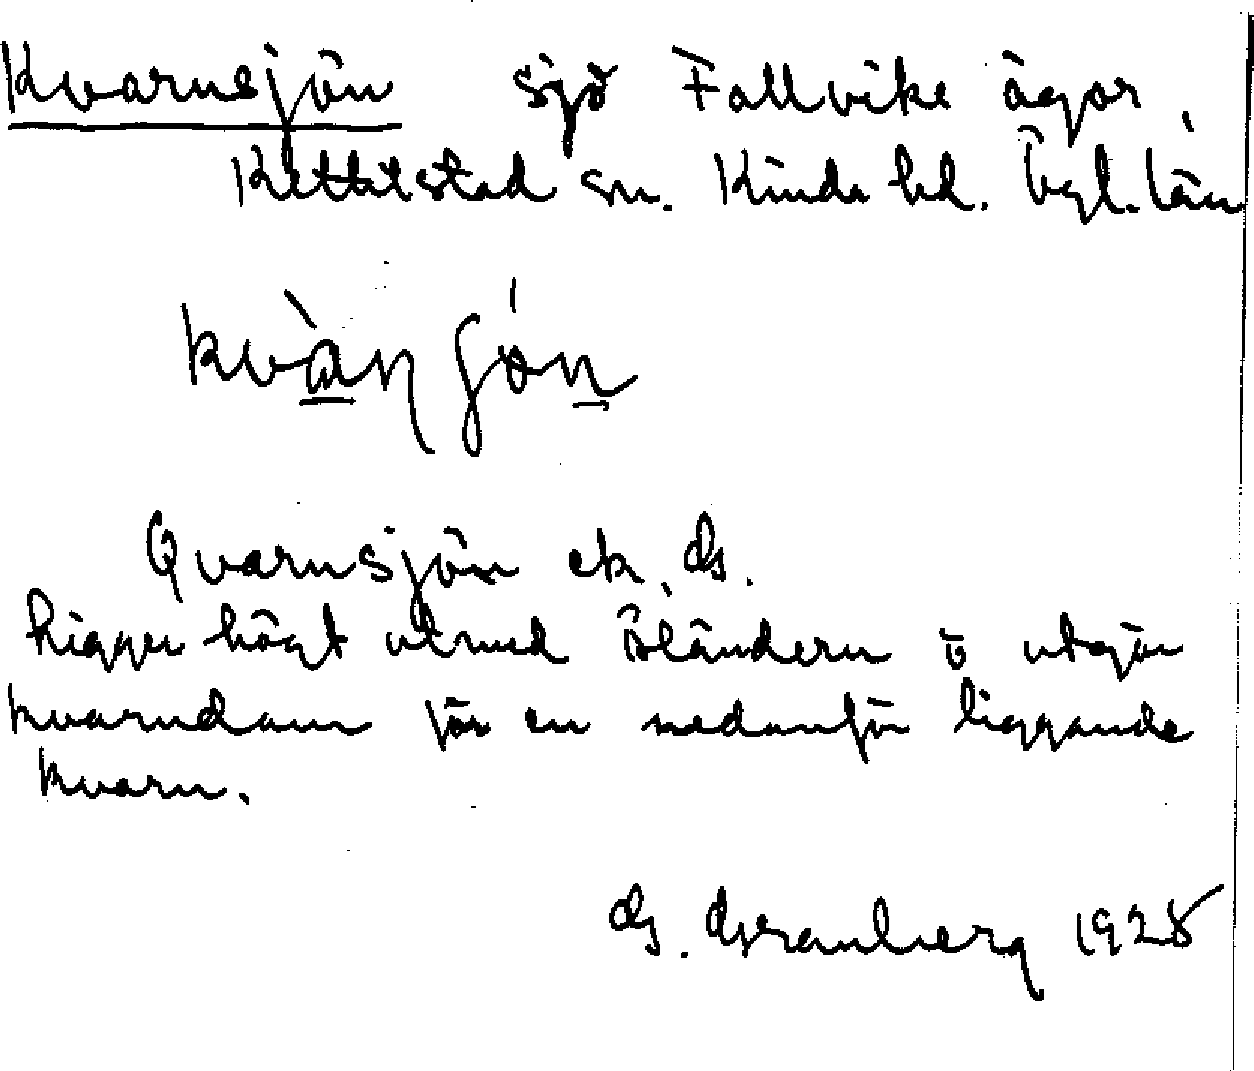 Kvarnsjön sjö Fallvike ägor,
Kettilstad sn. Kinda hd. Ögl. län
kvàn jón
Qvarnsjön ek. G.
Ligger högt utmed Ö utgör
kvarndam för en nedanför liggande
kvarn.
G. Granberg 1928